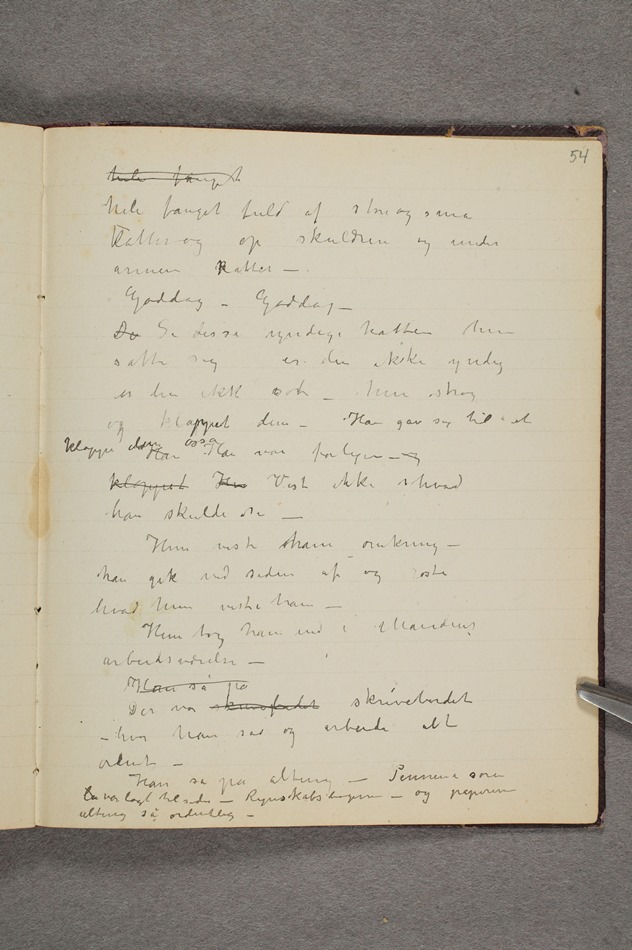 54
hele fanget
hele fanget fuld af store og små
Katter og op skuldren og under
armen Katter –
Goddag – Goddag –
Do Se disse yndige katter hun
satte sig er den ikke yndig
er den ikk søt – hun strøg
og klappet dem – Han gav sig til at
klappe dem osså
Han Han var forlegen – og
klappet Han Vist ikke hvad
han skulde si –
Hun viste ham omkring –
han gik ved siden af og roste
hvad hun viste ham –
Hun tog ham ind i Mandens
arbeidsværelse –
Han så på
Der var skrivebordet
– hvor han sad og arbeide alt
ordent –
Han så på alting – Pennene som
var lagt tilside – Regnskabsbøgerne – og papirerne
alting så ordentlig –